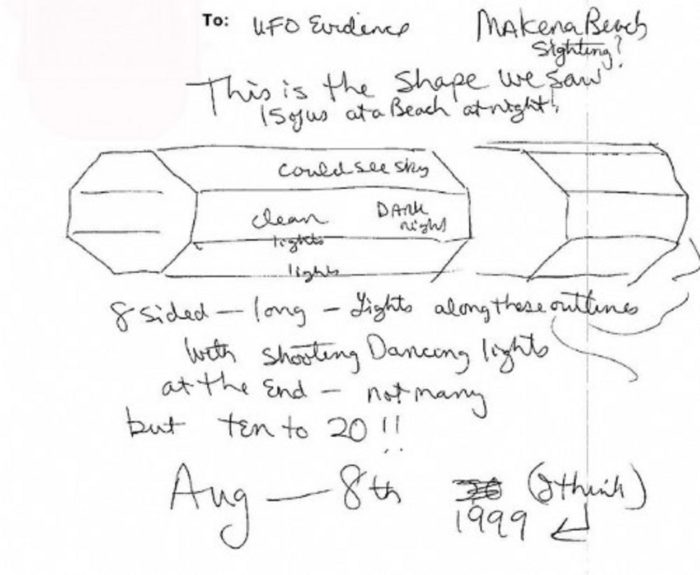 To: UFO Evidence
Makena Beach
Sighting?
This is the Shape We Saw
15 of us at a Beach at night!
could see sky
clean
DARK
night
lights
lights
8 sided — long — Lights along these outlines
With shooting Dancing lights
at the End — not many
but ten to 20 !!
Aug — 8th
(I think)
1999